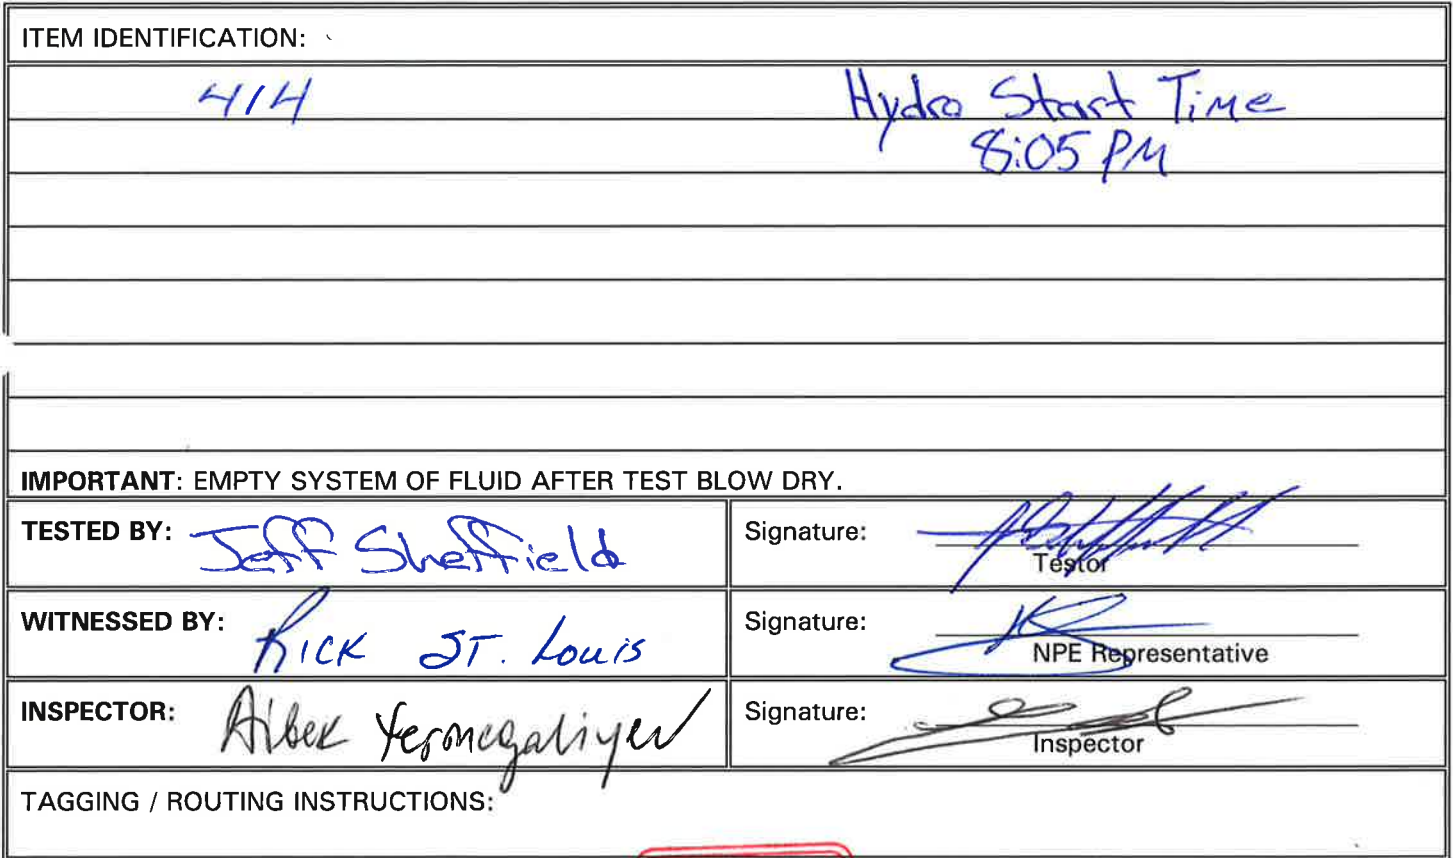 ITEM IDENTIFICATION:
414 Hydro Start Time
8:05 PM
IMPORTANT: EMPTY SYSTEM OF FLUID AFTER TEST BLOW DRY.
TESTED BY: Jeff Sheffield Signature:
Testor
WITNESSED BY: RICK ST. Louis Signature:
NPE Representative
INSPECTOR: Aibek Yermegaliyev Signature:
Inspector
TAGGING / ROUTING INSTRUCTIONS: